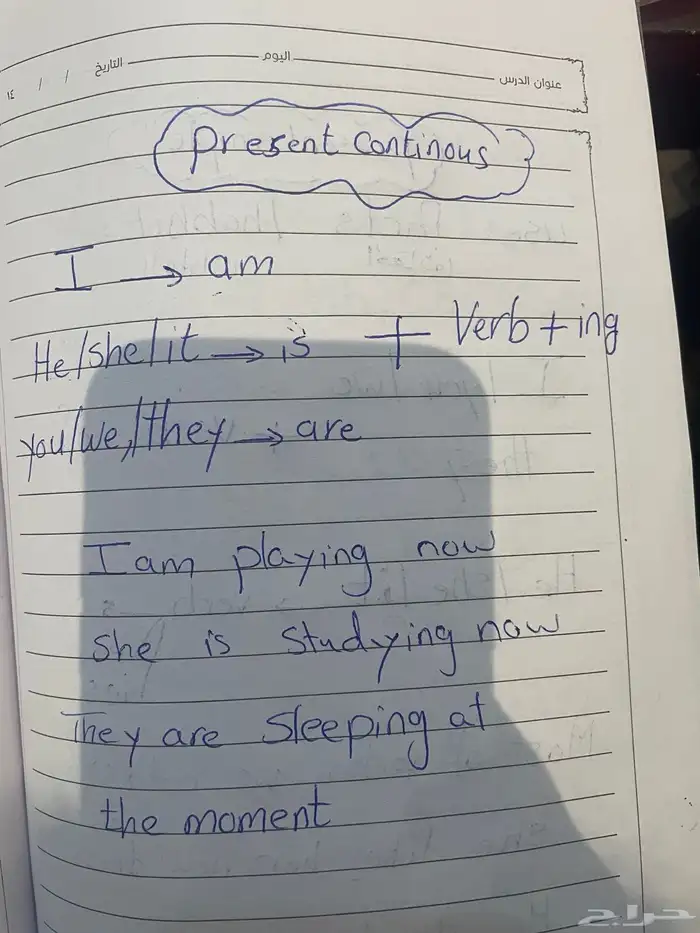 عنوان الدرس اليوم التاريخ / / ١٤
present continous
I → am
He/she/it → is + Verb + ing
you/we/they → are
I am playing now
she is studying now
They are sleeping at
the moment
حراج